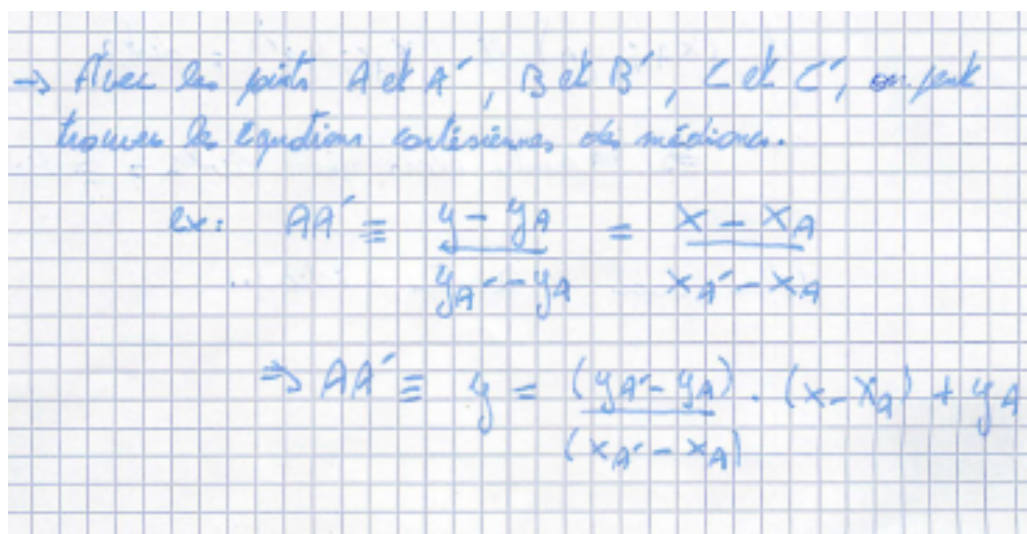 → Avec les points A et A', B et B', C et C', on peut
trouver les équations cartésiennes des médianes.
ex: AA' ≡ (y - y_A) / (y_A' - y_A) = (x - x_A) / (x_A' - x_A)
⇒ AA' ≡ y = (y_A' - y_A) / (x_A' - x_A) . (x - x_A) + y_A